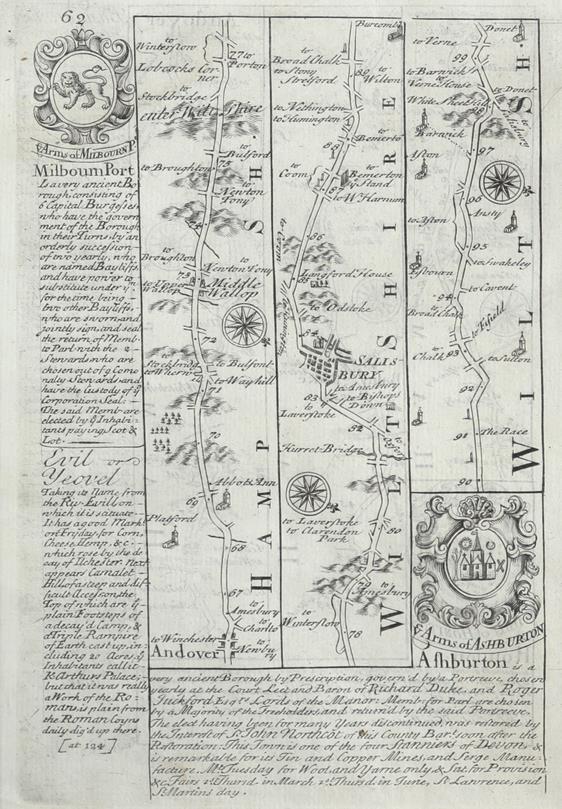 62
y Arms of MILBOURN P.
Milbourn Port
Is a very ancient Bo
rough consisting of
9 Capital Burgesses
who have the govern
ment of the Borough
in their Turns by an
orderly succession
of two yearly, who
are named Bayliffs
and have power to
substitute under ym
for the time being
two other Bayliffs,
who are sworn and
joyntly sign and seal
the return of Memb-
to Parl. with the 2
Stewards who are
chosen out of y Como
nalty Stewards and
have the Custody of y
Corporation Seal.
The said Memb. are
elected by y Inhabi-
tants paying Scot &
Lot.
Evil or
Yeovel
Taking its Name from
the Riv. Evill on
which it is situate.
It has a good Mark.t
on Friday for Corn,
Cheese, Hemp, &c.
which rose by the de
cay of Ilchester. Next
appears Camalet
Hill of a steep and dif-
ficult Access on the
Top of which are y
plain Footsteps of
a decay'd Camp, &
a Triple Rampire
of Earth cast up, in
cluding 20 Acres. y
Inhabitants call it
K. Arthurs Palace;
but that it was really
a Work of the Ro-
mans is plain from
the Roman Coyns
daily dig'd up there.
[at 124]
to Winterslow
77 to Porton
Lobcocks Cor-
ner
to Stockbridge
enter Wilt-shire
to Bulford
to Broughton
75
to Newton
Tony
74
to Broughton
Newton Tony
73
to Upper Wallop
Middle
Wallop
72
to Stockbridge
to Bulfont
to Wherwell
to Wayhill
71
70
Abbots Ann
69
Platford
68
67
to Amesbury
to Charlto
to Winchester
Andover
to Newbury
HAMP SH
Burcomb
to Broad Chalk
to Stony
Stretford
89
to Wilton
to Nethington
to Humington
88
to Bemerto
to Coom
87
to Bemerton
& Stand
to W. Harnum
86
Langford House
85
to Odstoke
84
SALIS-
BURY
to Amesbury
83
to Bishops
Down
to Laverstoke
82
Hurret Bridge
81
to Laverstoke
to Clarendon
Park
80
79
to Amesbury
to Winterslow
78
WILTSHIRE
Donet
to Verne
99
to Barwick
Verne House
to Donet
White Sheet Hill
to Salisbury
Barwick
97
Afton
96
Ansty
to Afton
95
to Swakeley
Fisbourn
94
to Cavent
to Broad Chalk
to Fifield
to Chalk
93
to Sutton
92
91
The Race
90
WILTSH.
y Arms of ASHBURTON
Ashburton is a
very ancient Borough by Prescription, govern'd by a Portreve, chosen
yearly at the Court Leet and Baron of Richard Duke, and Roger
Tuckford Esqrs. Lords of the Manor. Memb. for Parl. are chosen
by a Majority of the Freeholders, and return'd by the said Portreeve.
The elect. having been for many Years discontinued, was restored by
the Interest of Sr. John Northcot of this County Bar.t soon after the
Restoration: This Town is one of the four Stannerys of Devon, &
is remarkable for its Tin and Copper Mines, and Serge Manu-
facture. Mt. Tuesday for Wool and Yarne only, & Sat. for Provision
&c. Fairs 1st Thursd. in March, 1st Thursd. in June, St. Lawrence, and
St. Martins day.